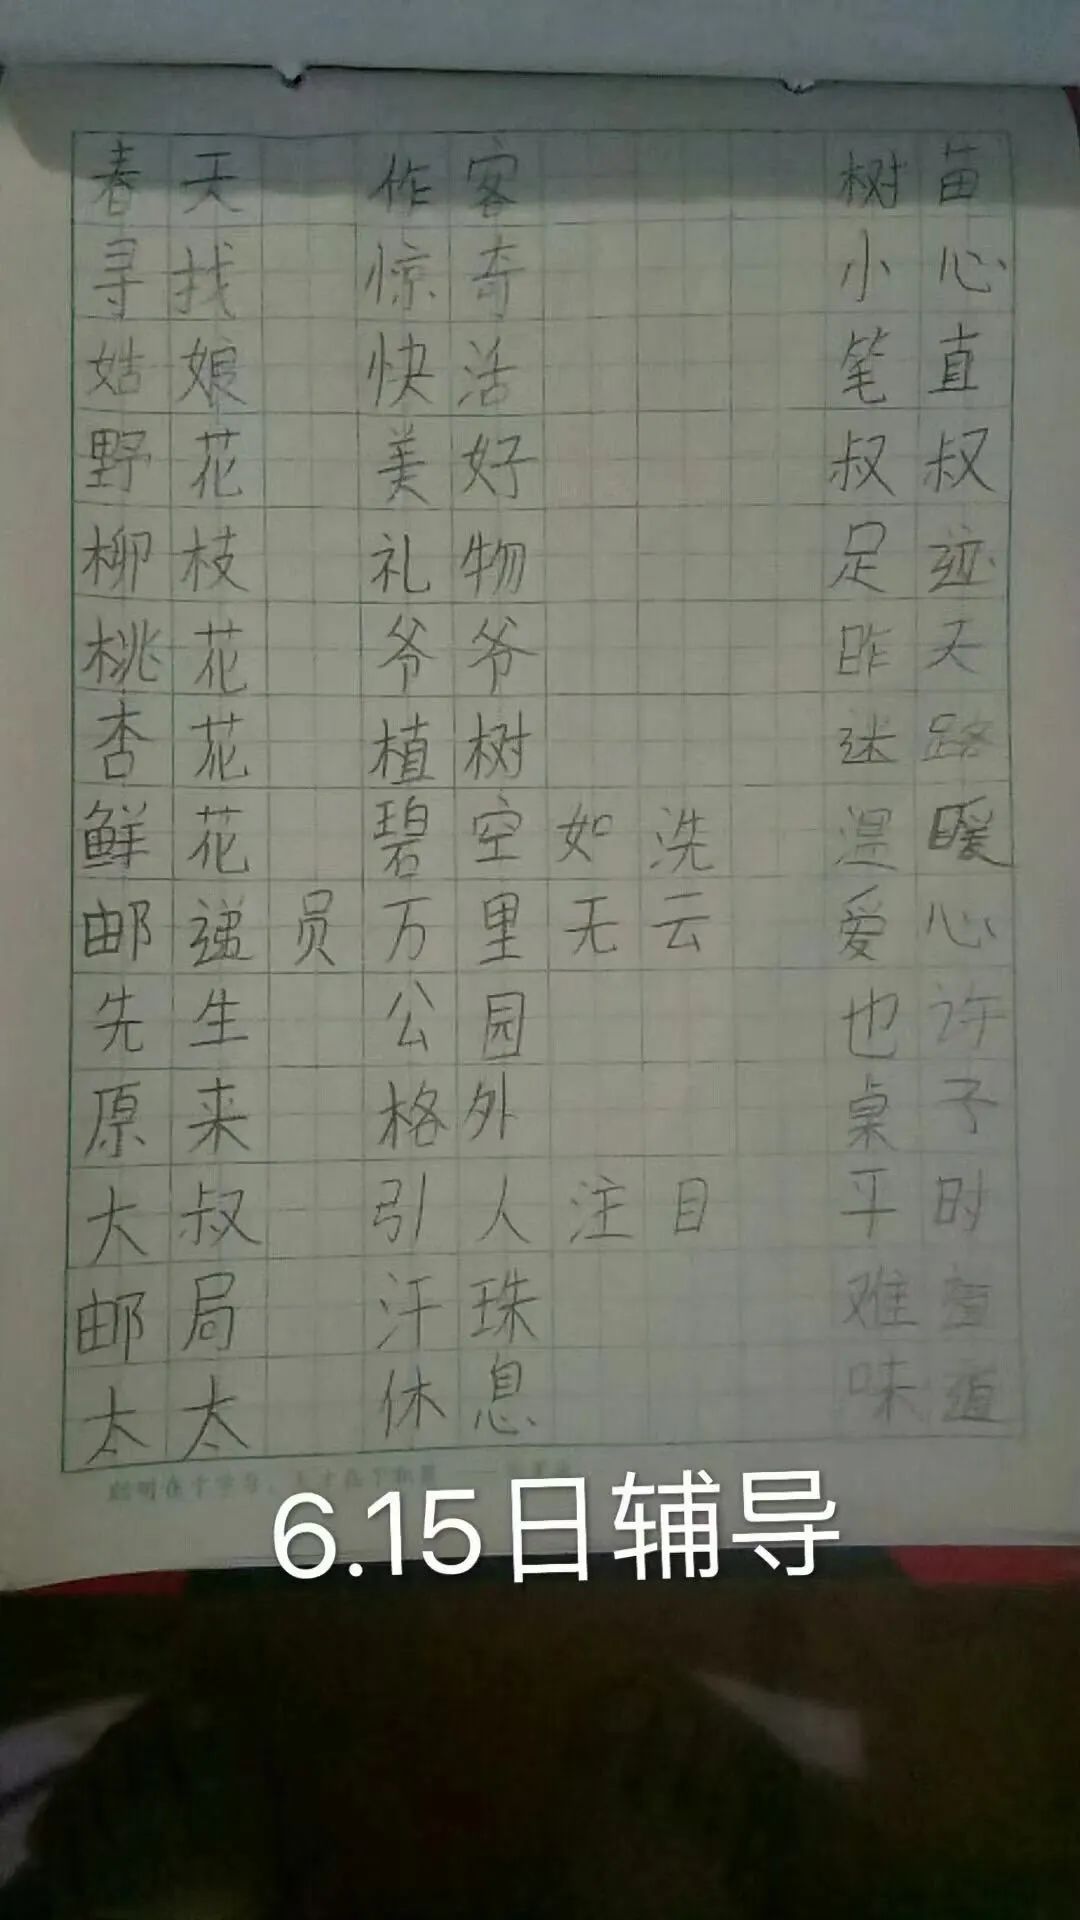 春天 作客 树苗
寻找 惊奇 小心
姑娘 快活 笔直
野花 美好 叔叔
柳枝 礼物 足迹
桃花 爷爷 昨天
杏花 植树 迷路
鲜花 碧空如洗 温暖
邮递员 万里无云 爱心
先生 公园 也许
原来 格外 桌子
大叔 引人注目 平时
邮局 汗珠 难道
太太 休息 味道
6.15日辅导